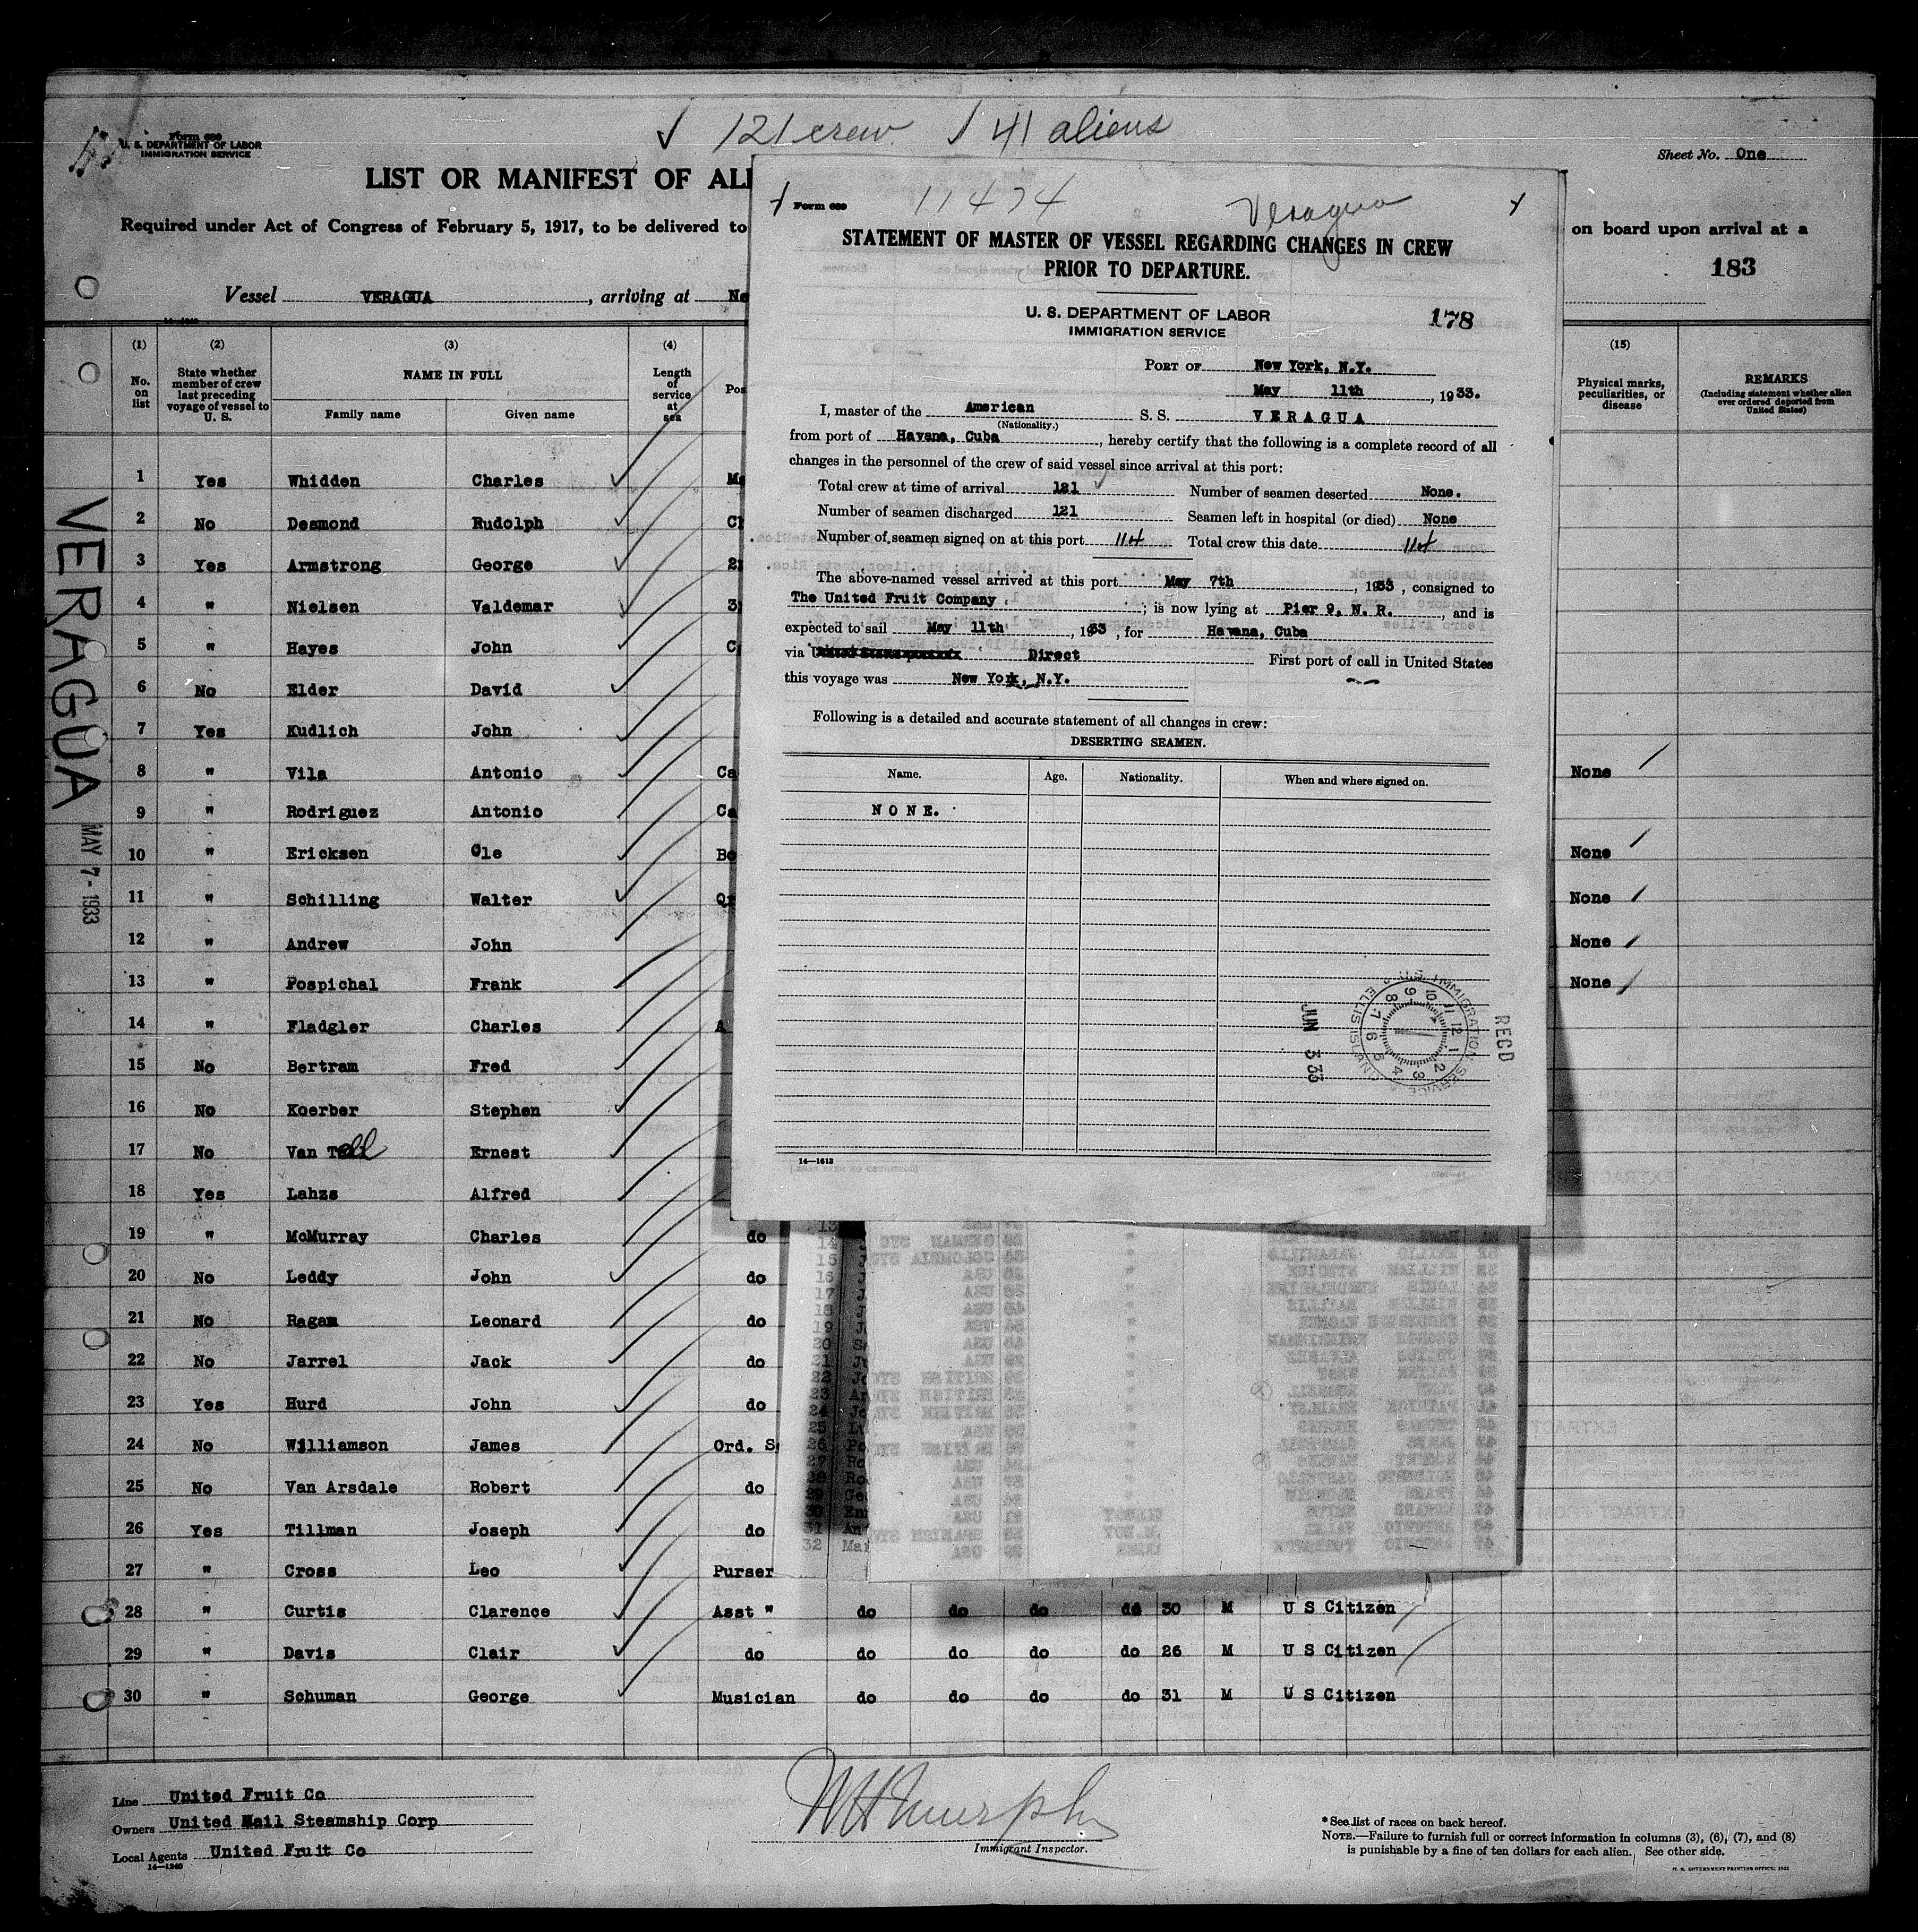 ✓ 121 crew / 41 aliens
Form 689
U. S. DEPARTMENT OF LABOR
IMMIGRATION SERVICE
Sheet No. One
LIST OR MANIFEST OF ALI
Required under Act of Congress of February 5, 1917, to be delivered to
on board upon arrival at a
183
Vessel VERAGUA, arriving at Ne
(1) (2) (3) (4)
No. on list
State whether member of crew last preceding voyage of vessel to U. S.
NAME IN FULL
Family name Given name
Length of service at sea
Pos
(15)
Physical marks, peculiarities, or disease
REMARKS
(Including statement whether alien ever ordered deported from United States)
1 Yes Whidden Charles
2 No Desmond Rudolph
3 Yes Armstrong George
4 " Nielsen Valdemar
5 " Hayes John
6 No Elder David
7 Yes Kudlich John
8 " Vila Antonio Ca None
9 " Rodriguez Antonio Ca
10 " Ericksen Ole Bo None
11 " Schilling Walter None
12 " Andrew John None
13 " Pospichal Frank None
14 " Fladgler Charles A
15 No Bertram Fred
16 No Koerber Stephen
17 No Van Ernest
18 Yes Lahzs Alfred
19 " McMurray Charles do
20 No Leddy John do
21 No Ragam Leonard do
22 No Jarrel Jack do
23 Yes Hurd John do
24 No Williamson James Ord. S
25 No Van Arsdale Robert do
26 Yes Tillman Joseph do
27 " Cross Leo Purser
28 " Curtis Clarence Asst " do do do do 30 M U S Citizen
29 " Davis Clair do do do do do 26 M U S Citizen
30 " Schuman George Musician do do do do 31 M U S Citizen
VERAGUA
MAY 7 - 1933
Line United Fruit Co
Owners United Mail Steamship Corp
Local Agents United Fruit Co
14—1240
Immigrant Inspector.
* See list of races on back hereof.
NOTE.—Failure to furnish full or correct information in columns (3), (6), (7), and (8)
is punishable by a fine of ten dollars for each alien. See other side.
Form 689
11474
Veragua
STATEMENT OF MASTER OF VESSEL REGARDING CHANGES IN CREW
PRIOR TO DEPARTURE.
U. S. DEPARTMENT OF LABOR
IMMIGRATION SERVICE
178
PORT OF New York, N.Y.
May 11th, 1933.
I, master of the American S. S. VERAGUA
(Nationality.)
from port of Havana, Cuba, hereby certify that the following is a complete record of all
changes in the personnel of the crew of said vessel since arrival at this port:
Total crew at time of arrival 121 Number of seamen deserted None.
Number of seamen discharged 121 Seamen left in hospital (or died) None
Number of seamen signed on at this port 114 Total crew this date 114
The above-named vessel arrived at this port May 7th, 1933, consigned to
The United Fruit Company; is now lying at Pier 9, N. R., and is
expected to sail May 11th, 1933, for Havana, Cuba
via Direct First port of call in United States
this voyage was New York, N.Y.
Following is a detailed and accurate statement of all changes in crew:
DESERTING SEAMEN.
Name. Age. Nationality. When and where signed on.
NONE.
RECD
U.S. IMMIGRATION SERVICE
ELLIS ISL
JUN 3 33
14—1613
13
14
15
16
17
18
19
20
21
22
23
24
25
26
27
28
29
30
31
32